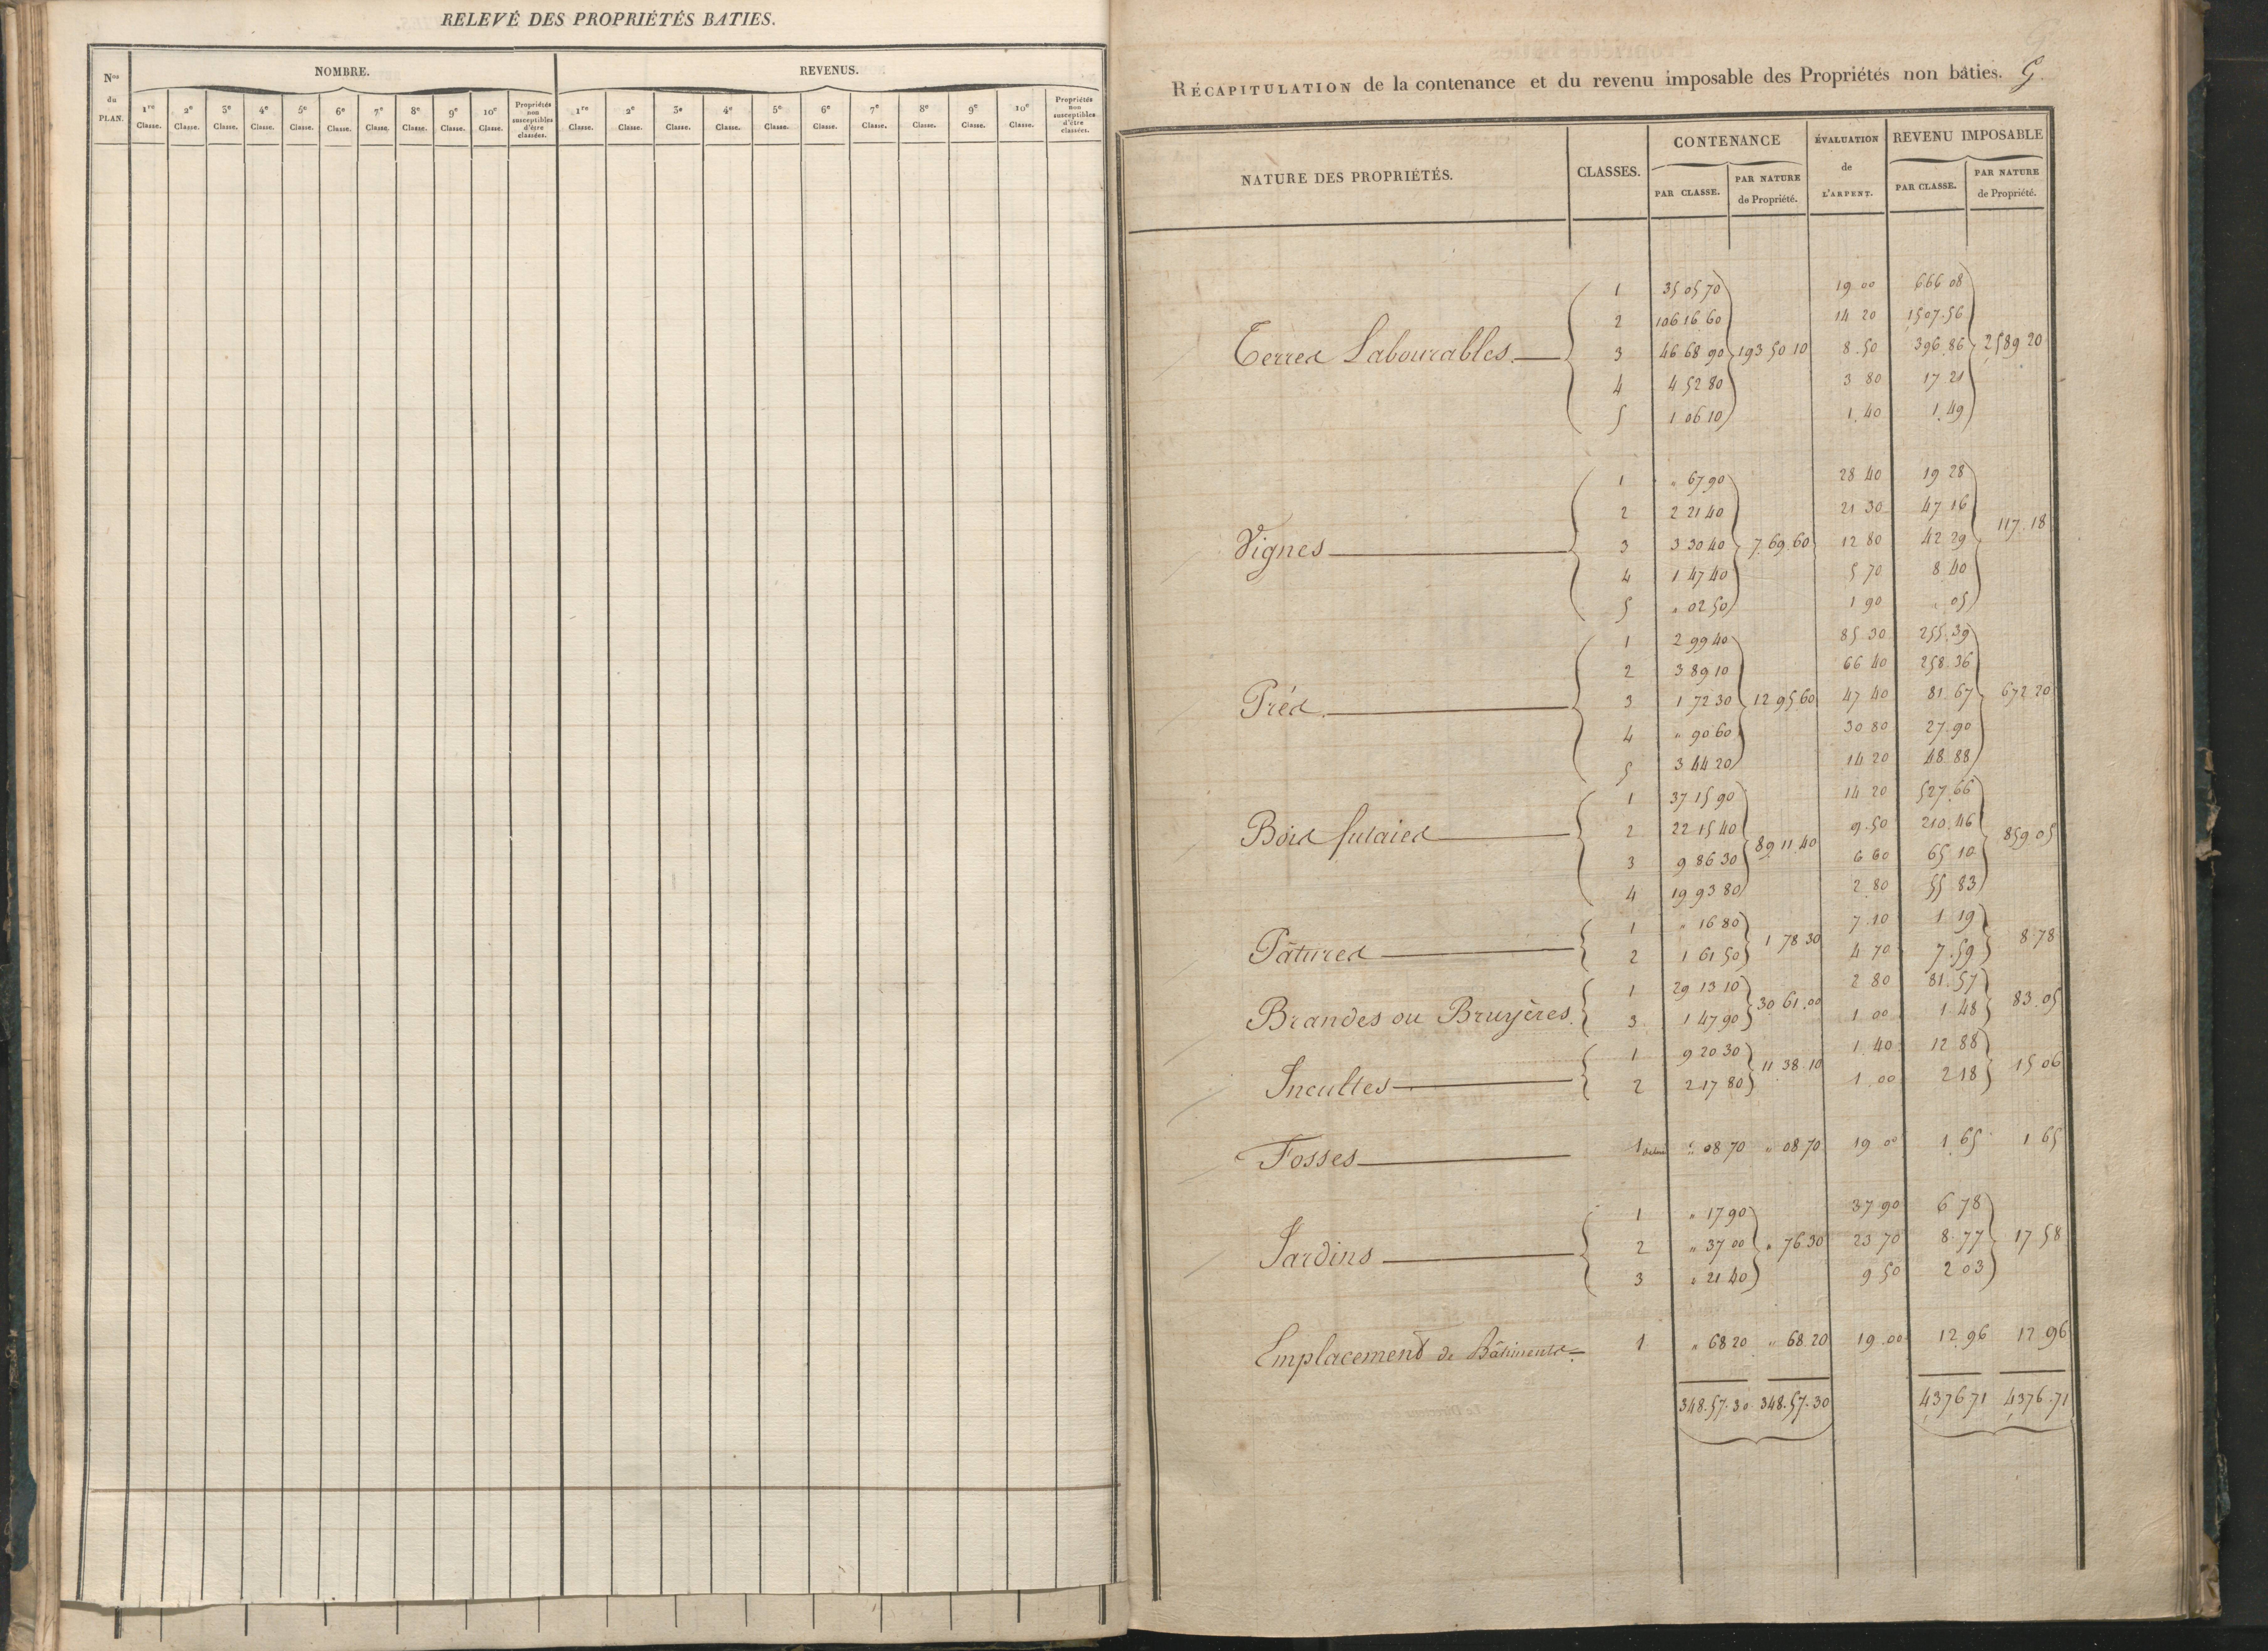 RELEVÉ DES PROPRIÉTÉS BATIES.
Nos du PLAN.
NOMBRE.
REVENUS.
1re Classe. 2e Classe. 3e Classe. 4e Classe. 5e Classe. 6e Classe. 7e Classe. 8e Classe. 9e Classe. 10e Classe. Propriétés non susceptibles d'être classées.
1re Classe. 2e Classe. 3e Classe. 4e Classe. 5e Classe. 6e Classe. 7e Classe. 8e Classe. 9e Classe. 10e Classe. Propriétés non susceptibles d'être classées.
RÉCAPITULATION de la contenance et du revenu imposable des Propriétés non bâties. G.
NATURE DES PROPRIÉTÉS. CLASSES. CONTENANCE ÉVALUATION de L'ARPENT. REVENU IMPOSABLE
PAR CLASSE. PAR NATURE de Propriété. PAR CLASSE. PAR NATURE de Propriété.
1 35 05 70 19 00 666 08
2 106 16 60 14 20 1507.56
Terres Labourables. 3 46 68 90 193 50 10 8.50 396.86 2589 20
4 4 52 80 3 80 17 21
5 1 06 10 1.40 1.49
1 " 67 90 28 40 19 28
2 2 21 40 21 30 47 16
Vignes 3 3 30 40 7.69.60 12 80 42 29 117.18
4 1 47 40 5 70 8 40
5 " 02 50 1 90 " 05
1 2 99 40 85 30 255.39
2 3 89 10 66 40 258.36
Prés. 3 1 72 30 12 95 60 47 40 81.67 672 20
4 " 90 60 30 80 27.90
5 3 44 20 14 20 48.88
1 37 15 90 14 20 527.66
Bois futaies 2 22 15 40 89 11 40 9.50 210.46 859 05
3 9 86 30 6 60 65 10
4 19 93 80 2 80 55 83
1 " 16 80 7.10 1 19
Pâtures 2 1 61 50 1 78 30 4 70 7.59 8.78
1 29 13 10 2 80 81.57
Brandes ou Bruyères. 3 1 47 90 30 61.00 1 00 1.48 83.05
1 9 20 30 1.40 12 88
Incultes 2 2 17 80 11 38 10 1.00 2 18 15 06
Fosses 1 " 08 70 " 08 70 19 00 1 65 1 65
1 " 17 90 37 90 6 78
Jardins 2 " 37 00 " 76 30 23 70 8.77 17 58
3 " 21 40 9 50 2 03
Emplacement de Bâtiments. 1 " 68 20 " 68 20 19.00 12.96 12 96
348.57.30 348.57.30 4376 71 4376.71